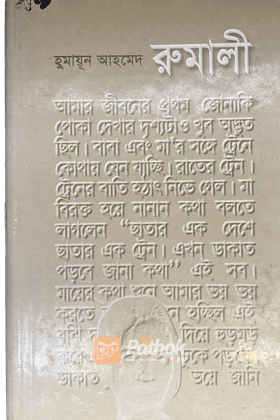 হুমায়ূন আহমেদ রুমালী
আমার জীবনের প্রথম জোনাকি
পোকা দেখার দৃশ্যটাও খুব অদ্ভুত
ছিল। বাবা এবং মা'র সঙ্গে ট্রেনে
কোথায় যেন যাচ্ছি। রাতের ট্রেন।
ট্রেনের বাতি হঠাৎ নিভে গেল। মা
বিরক্ত হয়ে নানান কথা বলতে
লাগলেন “ছাতার এক দেশে
ছাতার এক ট্রেন। এখন ডাকাত
পড়বে জানা কথা” এই সব।
মায়ের কথা শুনে আমার ভয় ভয়
করতে হচ্ছিল এই
দিয়ে হুড়মুড়
Pathok
ডাকাত ভয়ে জানি